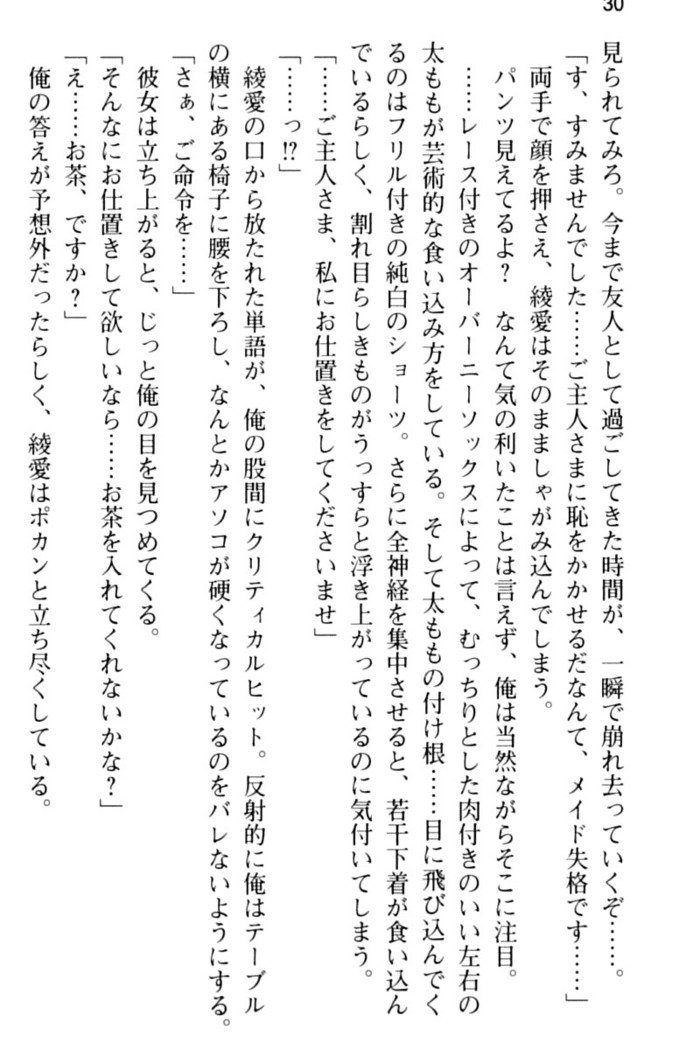 30
見られてみろ。今まで友人として過ごしてきた時間が、一瞬で崩れ去っていくぞ……。
「す、すみませんでした……ご主人さまに恥をかかせるだなんて、メイド失格です……」
両手で顔を押さえ、綾愛はそのまましゃがみ込んでしまう。
パンツ見えてるよ？　なんて気の利いたことは言えず、俺は当然ながらそこに注目。
……レース付きのオーバーニーソックスによって、むっちりとした肉付きのいい左右の
太ももが芸術的な食い込み方をしている。そして太ももの付け根……目に飛び込んでく
るのはフリル付きの純白のショーツ。さらに全神経を集中させると、若干下着が食い込ん
でいるらしく、割れ目らしきものがうっすらと浮き上がっているのに気付いてしまう。
「……ご主人さま、私にお仕置きをしてくださいませ」
「……っ!?」
綾愛の口から放たれた単語が、俺の股間にクリティカルヒット。反射的に俺はテーブル
の横にある椅子に腰を下ろし、なんとかアソコが硬くなっているのをバレないようにする。
「さぁ、ご命令を……」
彼女は立ち上がると、じっと俺の目を見つめてくる。
「そんなにお仕置きして欲しいなら……お茶を入れてくれないかな？」
「え……お茶、ですか？」
俺の答えが予想外だったらしく、綾愛はポカンと立ち尽くしている。